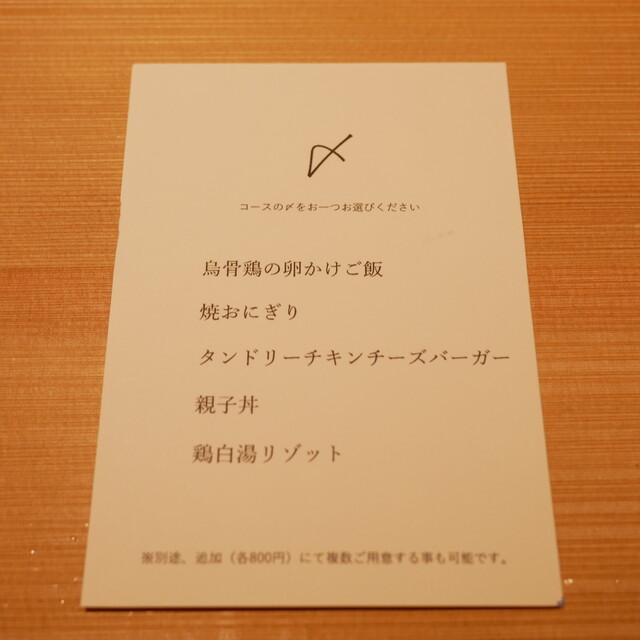 〆
コースの〆をお一つお選びください
烏骨鶏の卵かけご飯
焼おにぎり
タンドリーチキンチーズバーガー
親子丼
鶏白湯リゾット
※別途、追加（各800円）にて複数ご用意する事も可能です。